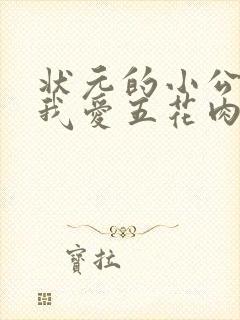 状元的小公
我爱五花肉
寶拉